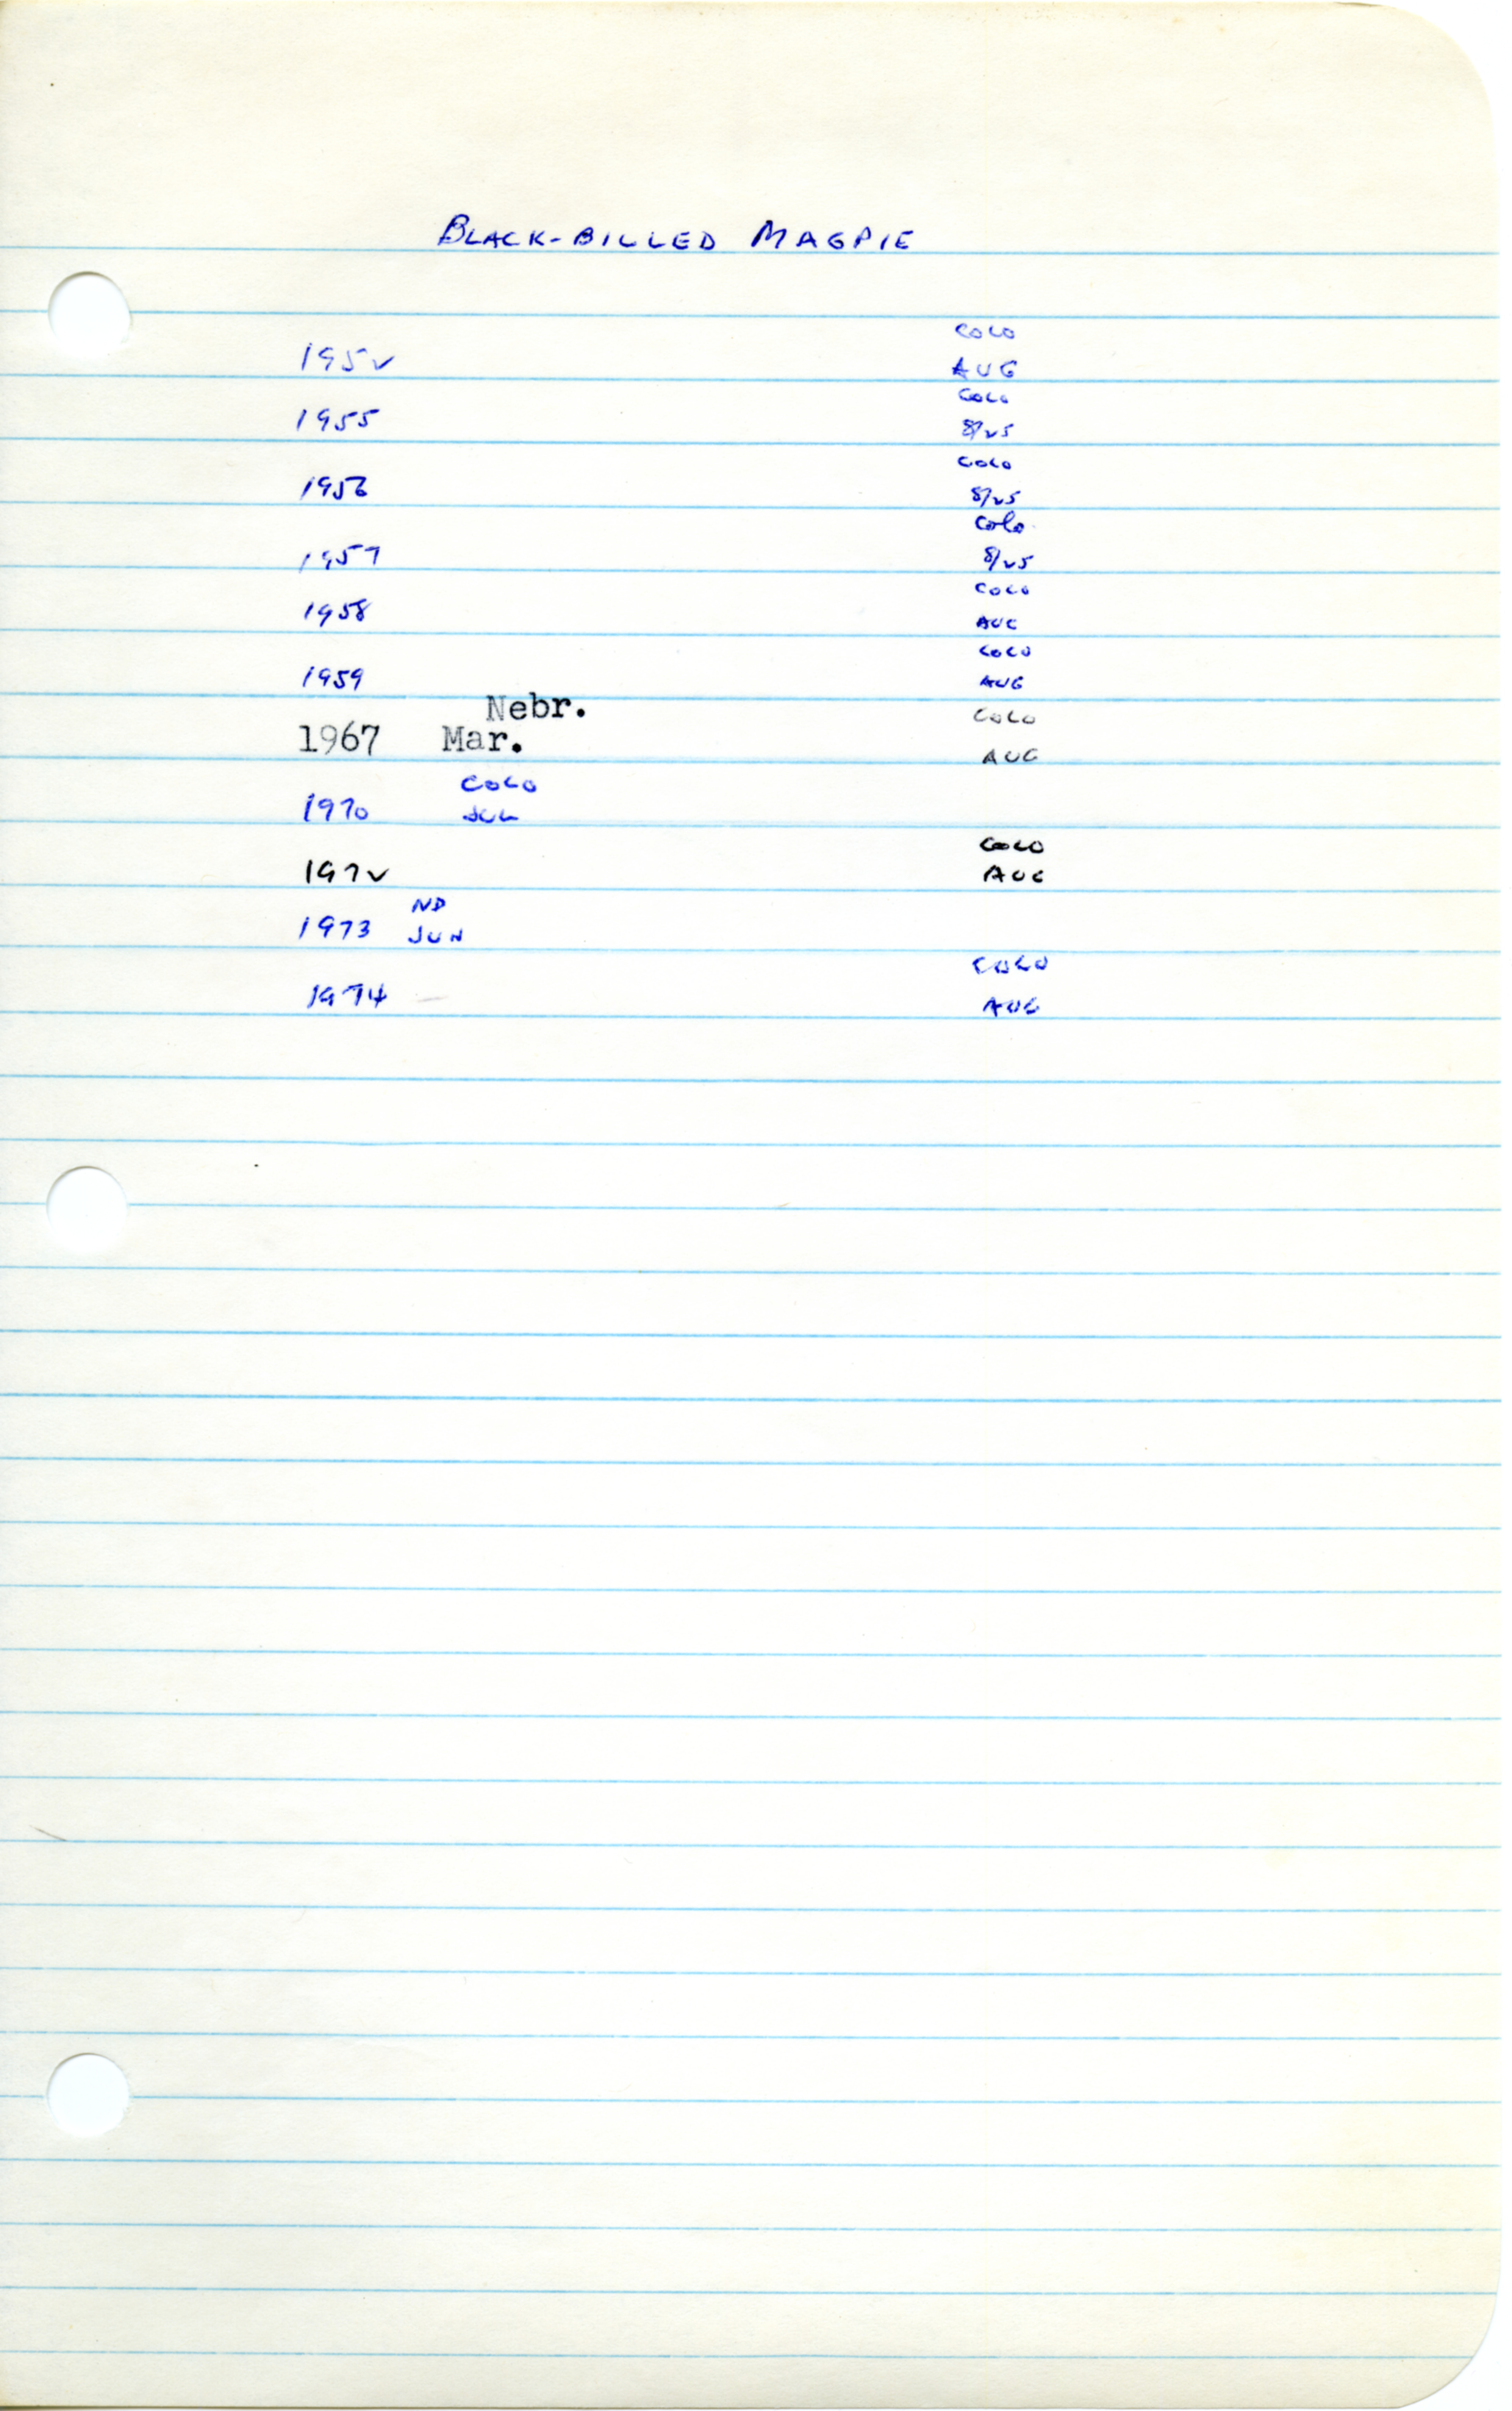 BLACK-BILLED MAGPIE
COLO
1952 AUG
COLO
1955 8/25
COLO
1956 8/25
Colo
1957 8/25
COLO
1958 AUG
COLO
1959 AUG
Nebr. COLO
1967 Mar. AUG
COLO
1970 JUL
COLO
1972 AUG
ND
1973 JUN
COLO
1974 AUG